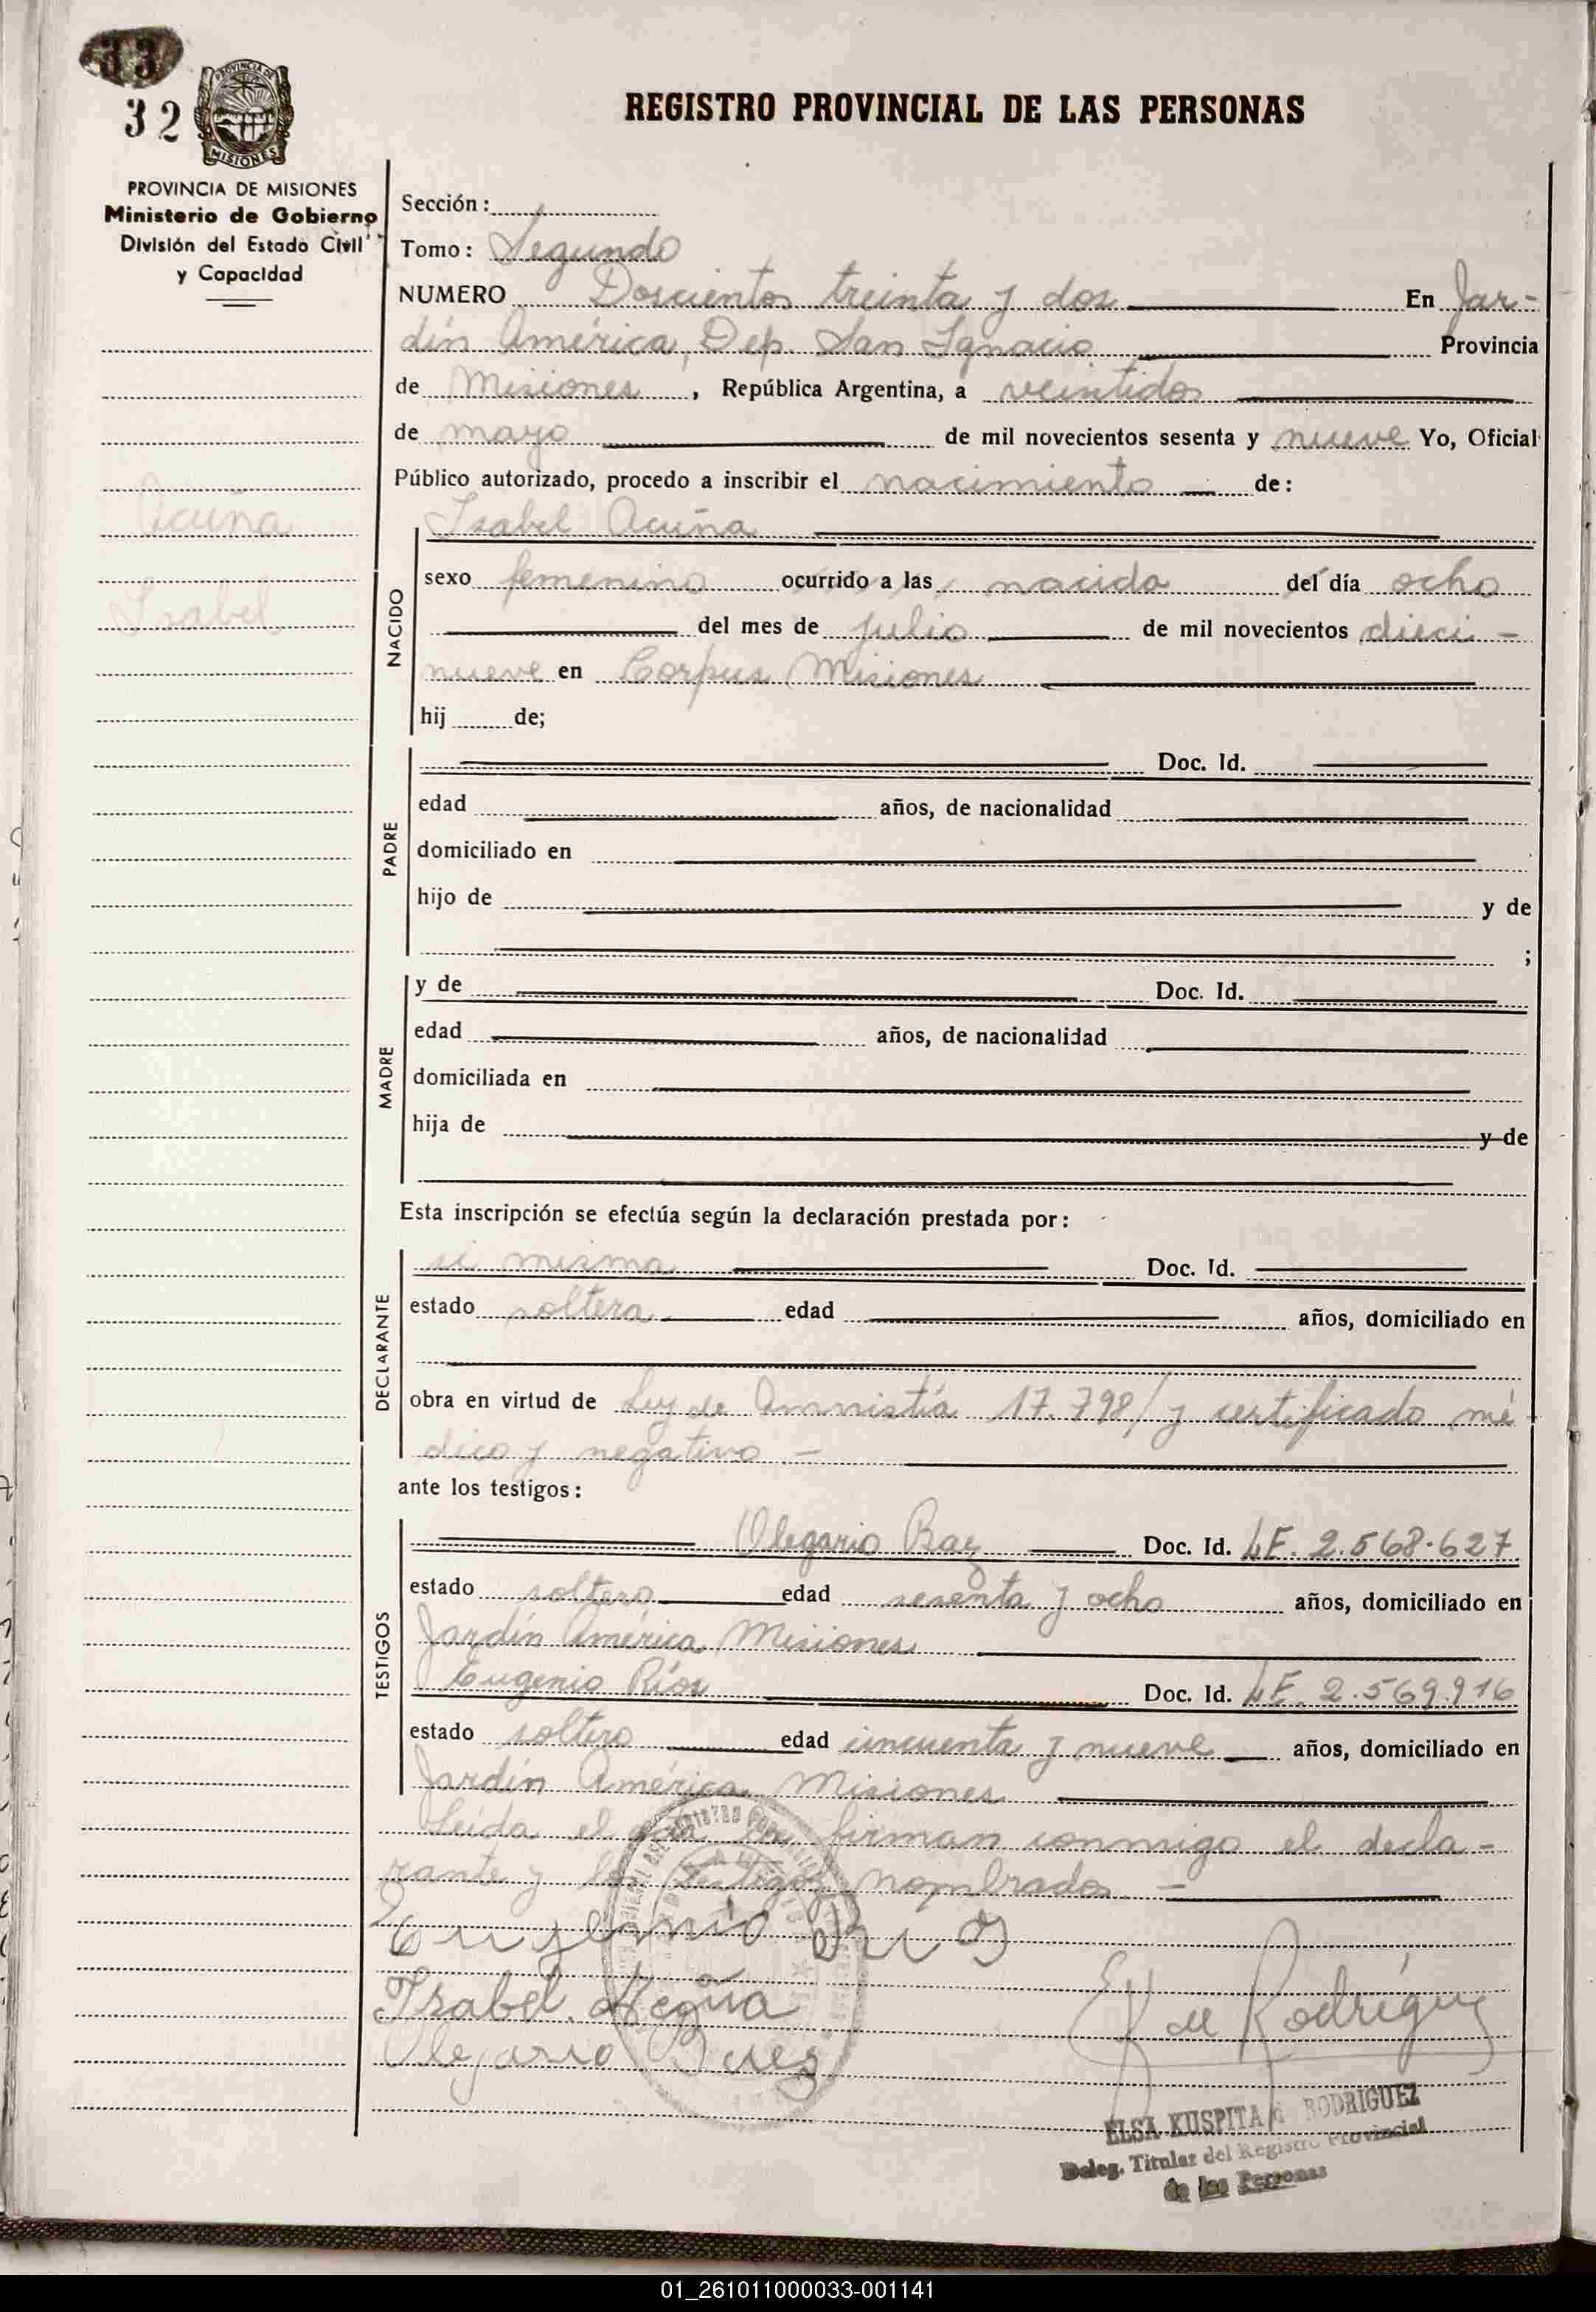 33
32
PROVINCIA DE
MISIONES
REGISTRO PROVINCIAL DE LAS PERSONAS
PROVINCIA DE MISIONES
Ministerio de Gobierno
División del Estado Civil
y Capacidad
Acuña
Isabel
Sección :
Tomo : Segundo
NUMERO Doscientos treinta y dos En Jar-
dín América, Dep. San Ignacio Provincia
de Misiones , República Argentina, a veintidos
de mayo de mil novecientos sesenta y nueve Yo, Oficial
Público autorizado, procedo a inscribir el nacimiento de :
NACIDO
Isabel Acuña
sexo femenino ocurrido a las nacida del día ocho
del mes de julio de mil novecientos dieci-
nueve en Corpus Misiones
hij de;
PADRE
Doc. Id.
edad años, de nacionalidad
domiciliado en
hijo de y de
;
MADRE
y de Doc. Id.
edad años, de nacionalidad
domiciliada en
hija de y de
Esta inscripción se efectúa según la declaración prestada por :
DECLARANTE
si misma Doc. Id.
estado soltera edad años, domiciliado en
obra en virtud de Ley de Amnistía 17.798/ y certificado mé
dico y negativo.-
ante los testigos :
TESTIGOS
Olegario Baez Doc. Id. LE. 2.568.627
estado soltero edad sesenta y ocho años, domiciliado en
Jardín América Misiones
Eugenio Ríos Doc. Id. LE. 2.569.916
estado soltero edad cincuenta y nueve años, domiciliado en
Jardín América Misiones
Leída el acta la firman conmigo el decla-
rante y los testigos nombrados.-
Eugenio Rios
Isabel
Olegario
E K de Rodríguez
ELSA KUSPITA d RODRIGUEZ
Deleg. Titular del Registro Provincial
de las Personas
01_261011000033-001141